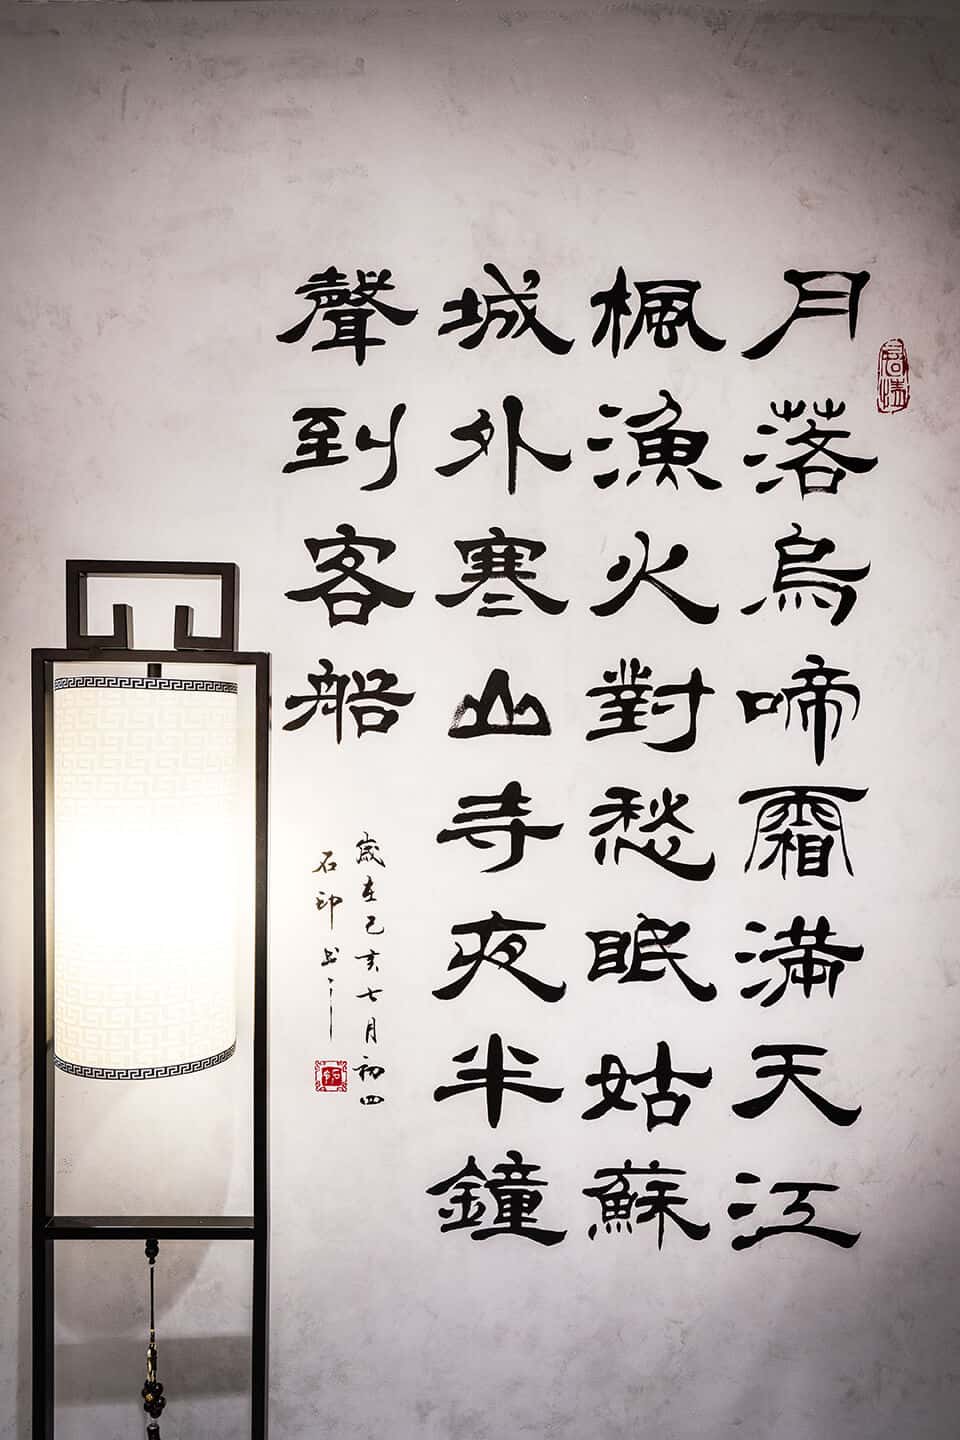 月落烏啼霜满天江
楓漁火對愁眠姑蘇
城外寒山寺夜半鐘
聲到客船
歲在己亥七月初四
石印书